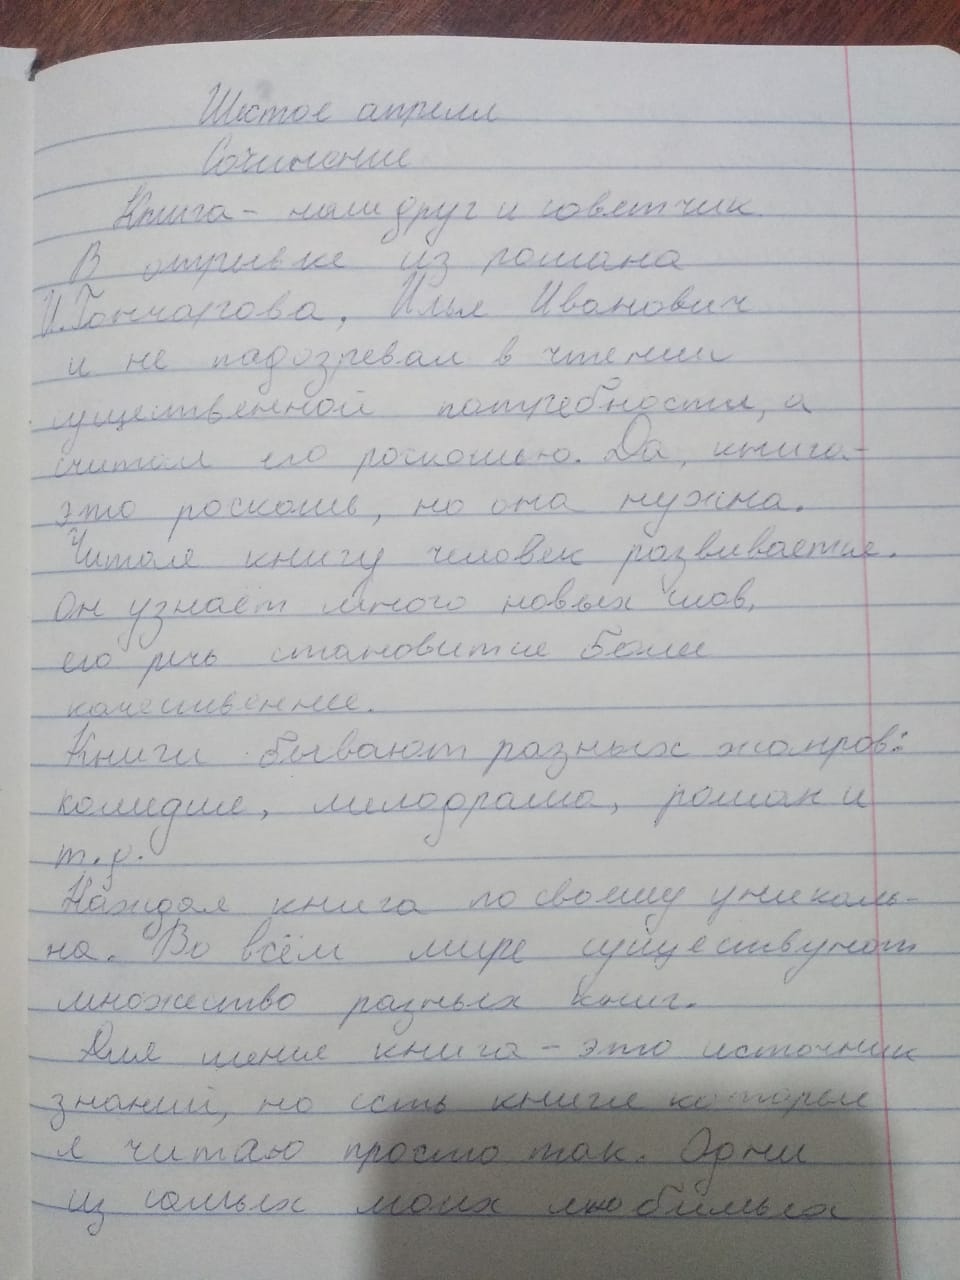 Шестое апреля
Сочинение
Книга - наш друг и советчик.
В отрывке из романа
И.Гончарова, Илья Иванович
и не падозревал в чтении
существенной потребности, и
считал его роскошью. Да, книга-
это роскошь, но она нужна.
Читая книгу человек развивается.
Он узнаёт много новых слов,
его речь становится более
качественнее.
Книги бывают разных жанров:
комидия, мелодрама, роман и
т.д.
Каждая книга по своему уникаль-
на. Во всём мире существуют
множество разных книг.
Для меня книга - это источник
знаний, но есть книги которые
я читаю просто так. Одни
из самых моих любимых